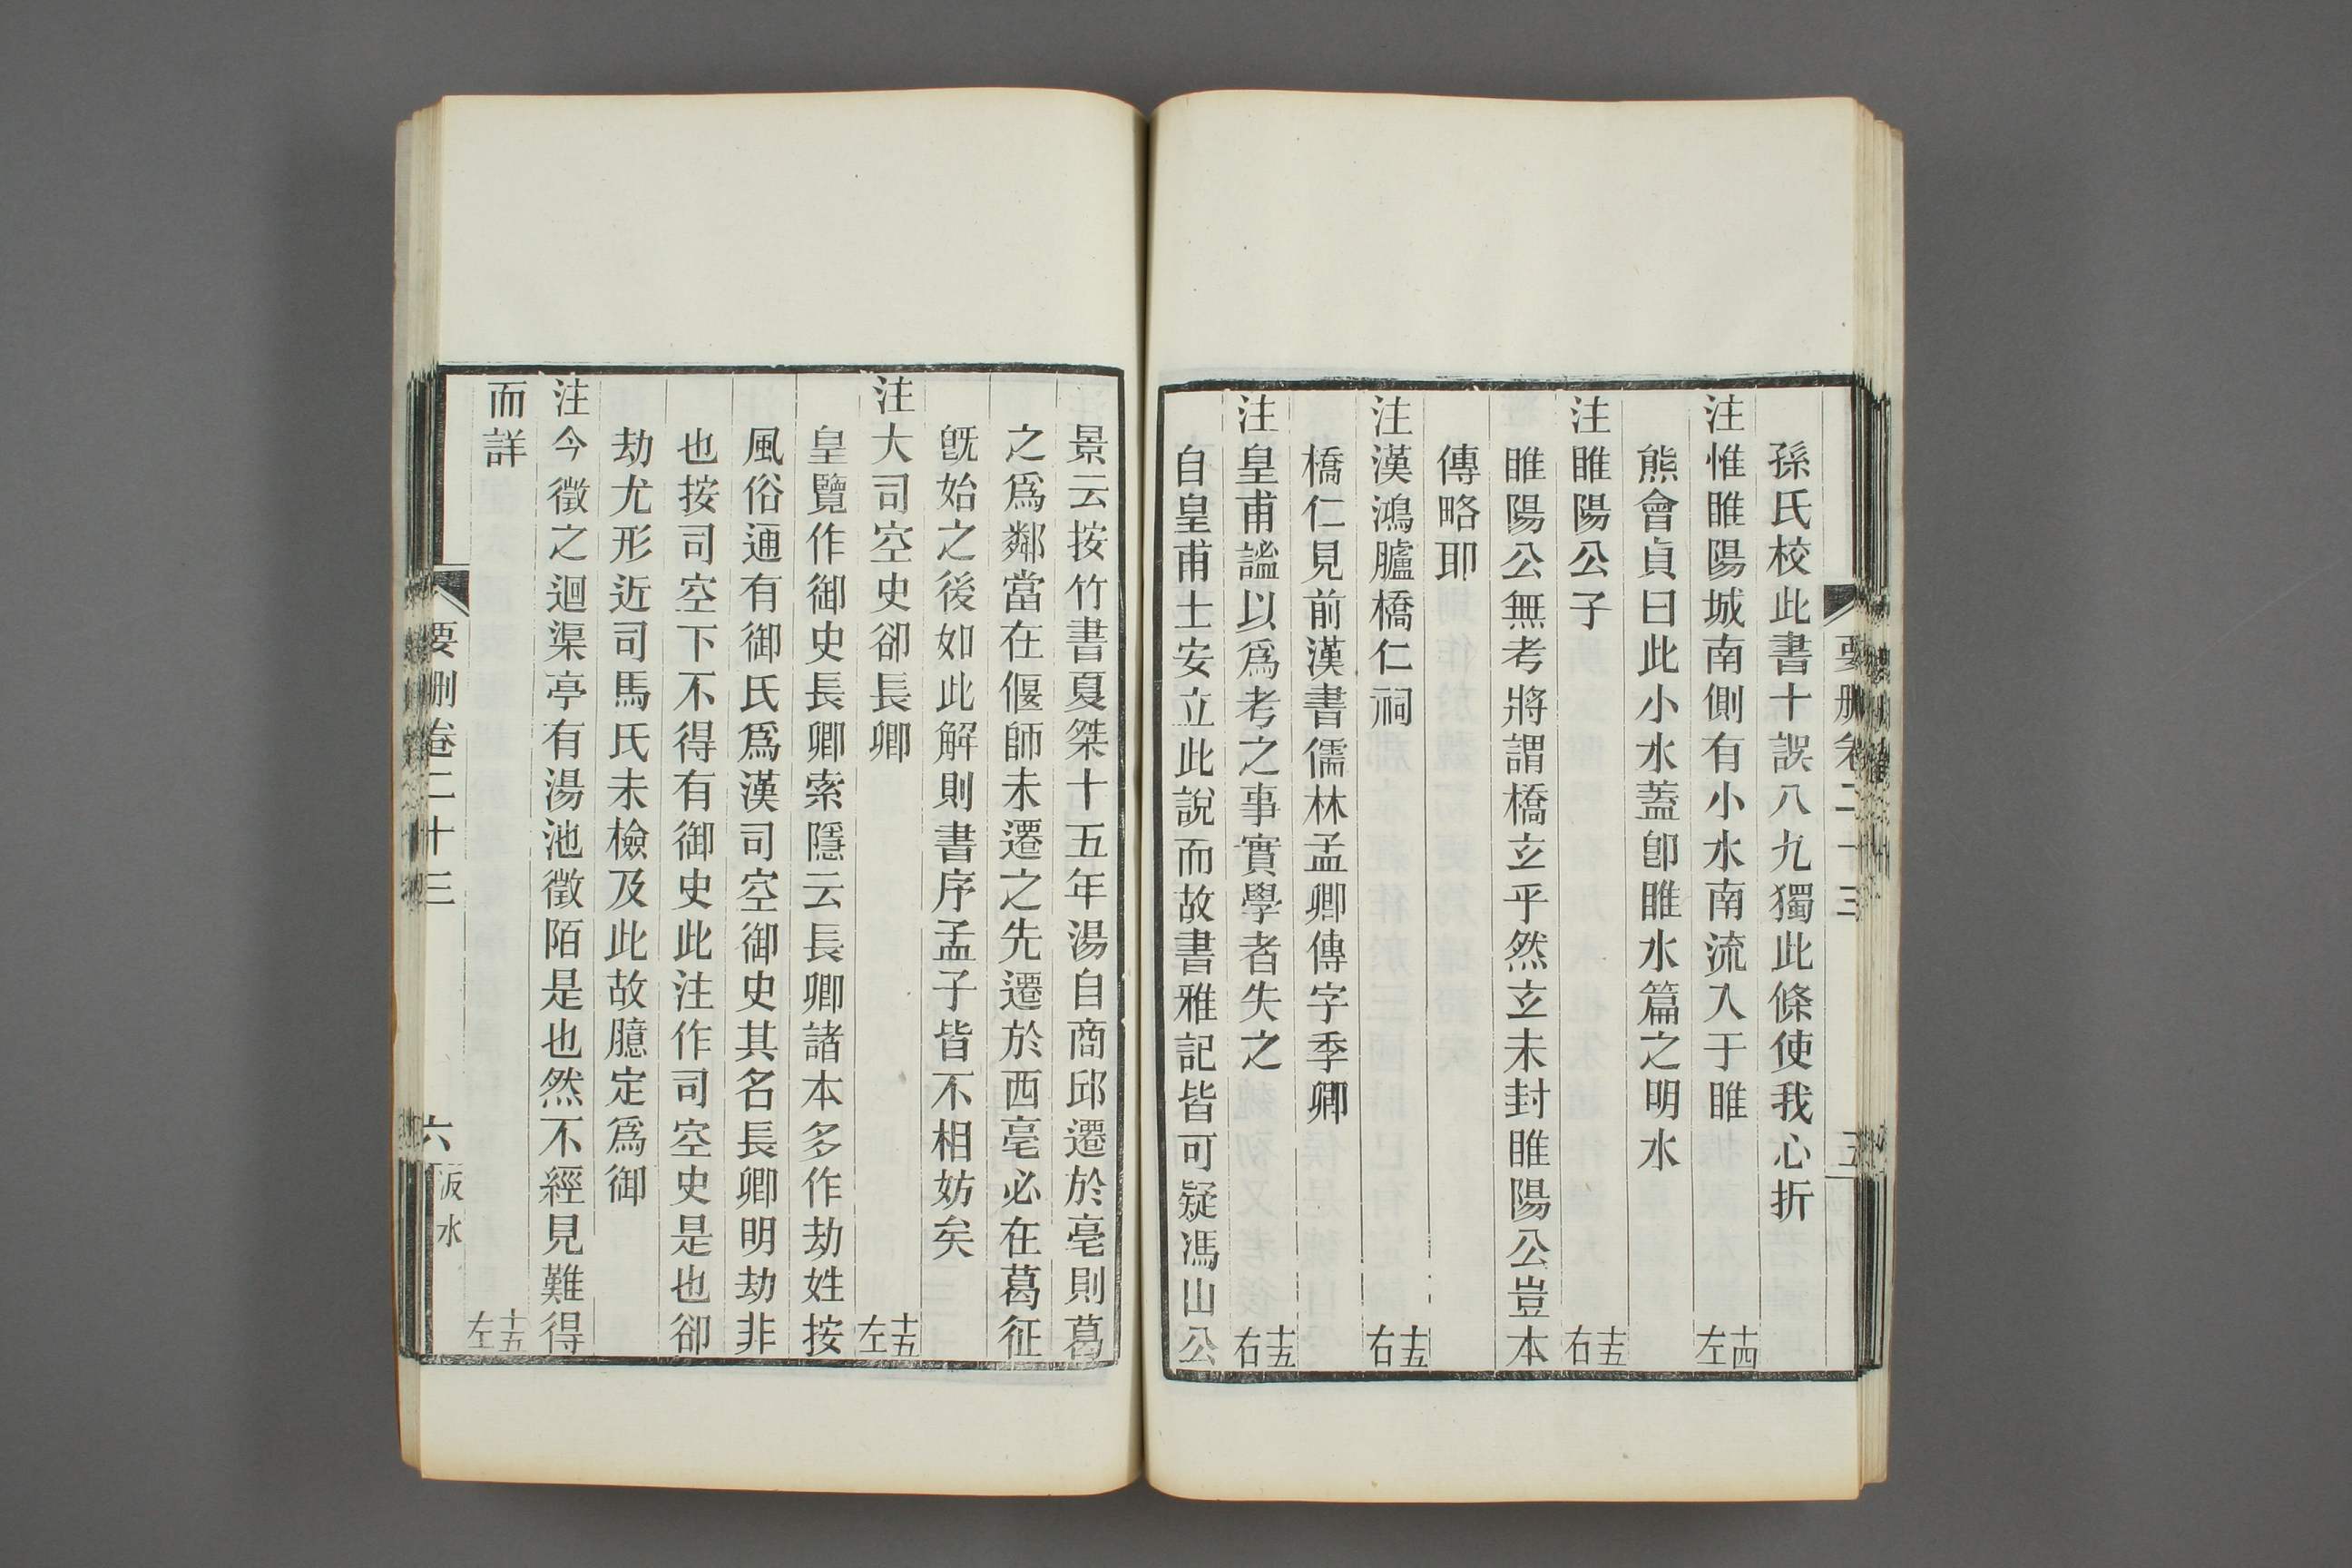 孫氏校此書十誤八九獨此條使我心折
注惟睢陽城南側有小水南流入于睢 十四左
熊會貞曰此小水蓋卽睢水篇之明水
注睢陽公子 十五右
睢陽公無考將謂橋玄乎然玄未封睢陽公豈本
傳略耶
注漢鴻臚橋仁祠 十五右
橋仁見前漢書儒林孟卿傳字季卿
注皇甫謐以爲考之事實學者失之 十五右
自皇甫士安立此說而故書雅記皆可疑馮山公
景云按竹書夏桀十五年湯自商邱遷於亳則葛
之爲鄰當在偃師未遷之先遷於西亳必在葛征
旣始之後如此解則書序孟子皆不相妨矣
注大司空史卻長卿 十五左
皇覽作御史長卿索隱云長卿諸本多作劫姓按
風俗通有御氏爲漢司空御史其名長卿明劫非
也按司空下不得有御史此注作司空史是也卻
劫尤形近司馬氏未檢及此故臆定爲御
注今徵之迴渠亭有湯池徵陌是也然不經見難得
而詳 十五左
要删卷二十三 六 汳水